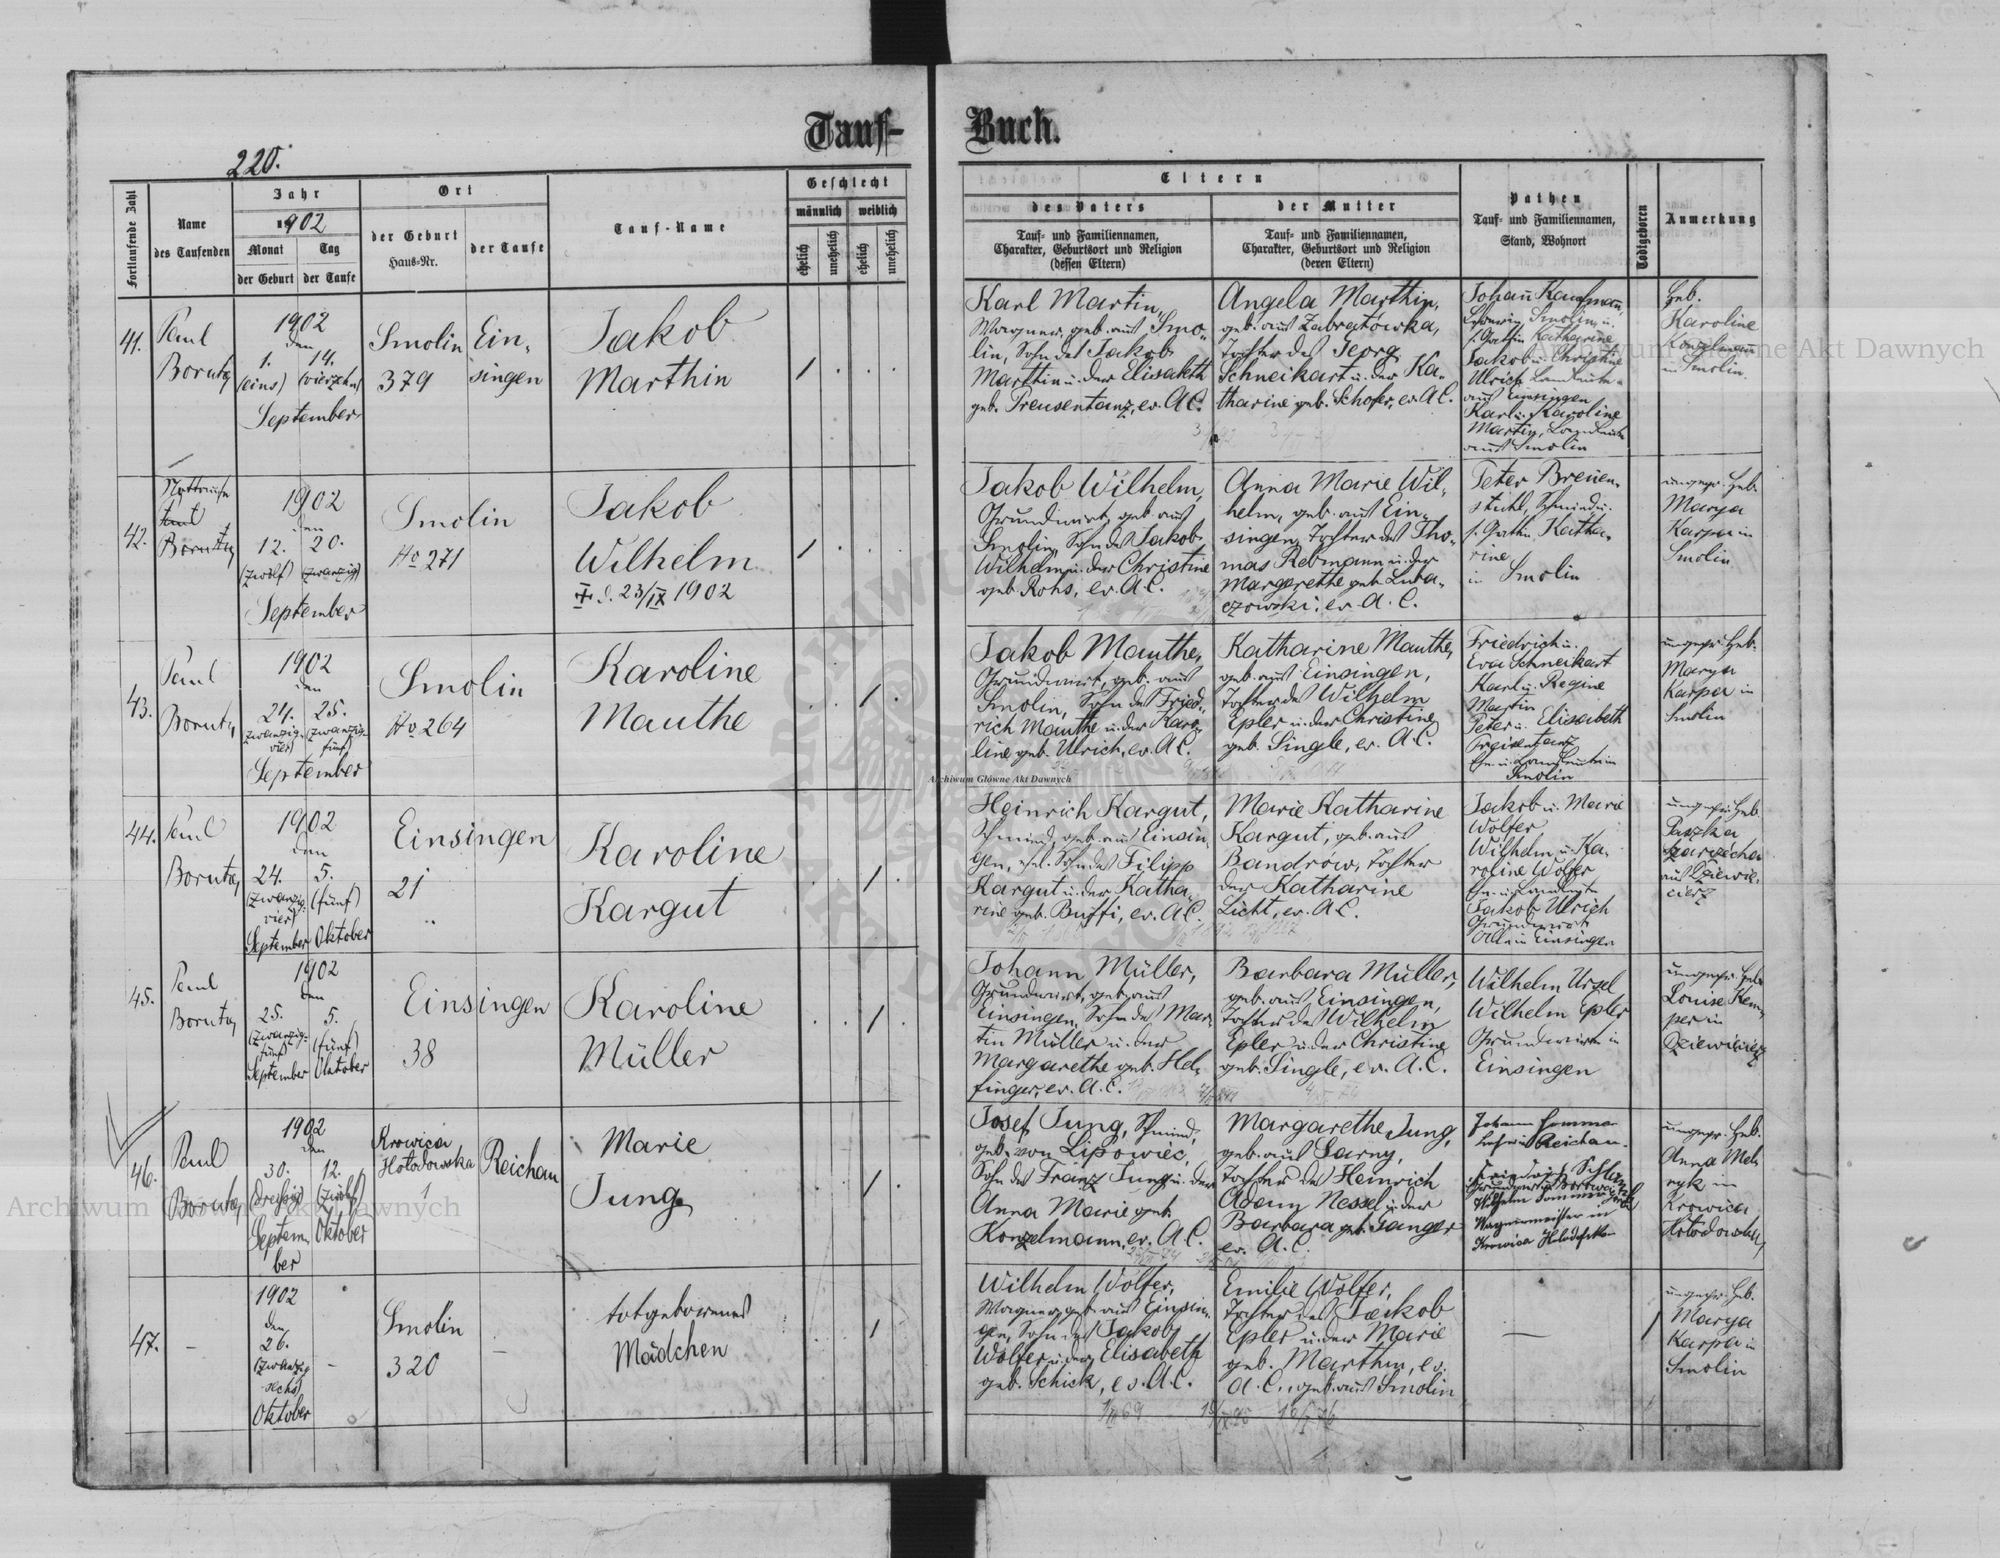 Tauf-Buch.
220.
Fortlaufende Zahl
Name
des Taufenden
Jahr
1902
Monat
der Geburt
Tag
der Taufe
Ort
der Geburt
Haus-Nr.
der Taufe
Tauf-Name
Geschlecht
männlich
weiblich
ehelich
unehelich
ehelich
unehelich
Eltern
des Vaters
Tauf- und Familiennamen,
Charakter, Geburtsort und Religion
(dessen Eltern)
der Mutter
Tauf- und Familiennamen,
Charakter, Geburtsort und Religion
(deren Eltern)
Pathen
Tauf- und Familiennamen,
Stand, Wohnort
Todtgeboren
Anmerkung
41.
Paul
Boruta
1902
den
1. 14.
(eins) (vierzehn)
September
Smolin
379
Ein-
singen
Jakob
Marthin
Karl Martin,
Wagner, geb. aus Smo-
lin, Sohn des Jakob
Marthin u. der Elisabeth
geb. Preusentanz, ev. A.C.
Angela Marthin,
geb. aus Zabratówka,
Tochter des Georg
Schneikart u. der Ka-
tharine geb. Schofer, ev. A.C.
Johann Kaufmann,
Smolin, u.
s. Gattin Katharine
Jakob u. Christine
Ulrich Landwirte
aus Einsingen
Karl u. Karoline
Martin, Landleute
aus Smolin
Heb.
Karoline
Konzlmann
in Smolin.
42.
Nottaufe
Paul
Boruta
1902
den
12. 20.
(zwölf) (zwanzig)
September
Smolin
No 271
Jakob
Wilhelm
d. 23/IX 1902
Jakob Wilhelm,
Grundwirt, geb. aus
Smolin, Sohn des Jakob
Wilhelm u. der Christine
geb. Rohs, ev. A.C.
Anna Marie Wil-
helm, geb. aus Ein-
singen, Tochter des Tho-
mas Rebmann u. der
Margarethe geb. Luba-
czowski, ev. A.C.
Peter Breuen-
stuhl, Schmied u.
s. Gattin Katha-
rine
in Smolin
ungepr. Heb.
Marya
Karpa in
Smolin
43.
Paul
Boruta
1902
den
24. 25.
(zwanzig- (zwanzig-
vier) fünf)
September
Smolin
No 264
Karoline
Mauthe
Jakob Mauthe,
Grundwirt, geb. aus
Smolin, Sohn des Fried-
rich Mauthe u. der Karo-
line geb. Ulrich, ev. A.C.
Katharine Mauthe,
geb. aus Einsingen,
Tochter des Wilhelm
Epler u. der Christine
geb. Single, ev. A.C.
Friedrich u.
Eva Schneikart
Karl u. Regine
Martin
Peter u. Elisabeth
Preisentanz
Ehe- u. Landleute in
Smolin
ungepr. Heb.
Marya
Karpa in
Smolin
44.
Paul
Boruta
1902
den
24. 5.
(zwanzig- (fünf)
vier)
September Oktober
Einsingen
21
Karoline
Kargut
Heinrich Kargut,
Schmied, geb. aus Einsin-
gen, ehel. Sohn des Filipp
Kargut u. der Katha-
rine geb. Buffi, ev. A.C.
Marie Katharine
Kargut, geb. aus
Bandrow, Tochter
der Katharine
Licht, ev. A.C.
Jakob u. Marie
Wolfer
Wilhelm u. Ka-
roline Wolfer
Ehe- u. Landleute
Jakob Ulrich
Grundwirt
Alle in Einsingen
ungepr. Heb.
Paszka
aus Dziewię-
cierz
45.
Paul
Boruta
1902
den
25. 5.
(zwanzig- (fünf)
fünf)
September Oktober
Einsingen
38
Karoline
Müller
Johann Müller,
Grundwirt, geb. aus
Einsingen, Sohn des Mar-
tin Müller u. der
Margarethe geb. Hel-
finger, ev. A.C.
Barbara Müller,
geb. aus Einsingen,
Tochter des Wilhelm
Epler u. der Christine
geb. Single, ev. A.C.
Wilhelm Ursel
Wilhelm Epler
Grundwirte in
Einsingen
ungepr. Heb.
Louise Kem-
per in
Dziewięcierz
46.
Paul
Boruta
1902
den
30. 12.
(dreißig) (zwölf)
Septem- Oktober
ber
Krowica
Hołodowska
1
Reichau
Marie
Jung
Josef Jung, Schmied,
geb. von Lipowiec,
Sohn des Franz Jung u. der
Anna Marie geb.
Konzelmann, ev. A.C.
Margarethe Jung,
geb. aus Sarny,
Tochter des Heinrich
Adam Nessel u. der
Barbara geb. Sanger
ev. A.C.
Johann
Reichau.
Friedrich
Wilhelm
Wagnermeister in
Krowica Holodowska
ungepr. Heb.
Anna Mel-
ryk in
Krowica
Hołodowska
47.
1902
den
26.
(zwanzig-
sechs)
Oktober
Smolin
320
totgeborenes
Mädchen
Wilhelm Wolfer,
Wagner, geb. aus Einsin-
gen, Sohn des Jakob
Wolfer u. der Elisabeth
geb. Schick, ev. A.C.
Emilie Wolfer,
Tochter des Jakob
Epler u. der Marie
geb. Marthin, ev.
A.C., geb. aus Smolin
ungepr. Heb.
Marya
Karpa in
Smolin
Archiwum Główne Akt Dawnych
Archiwum Główne Akt Dawnych
Archiwum Główne Akt Dawnych